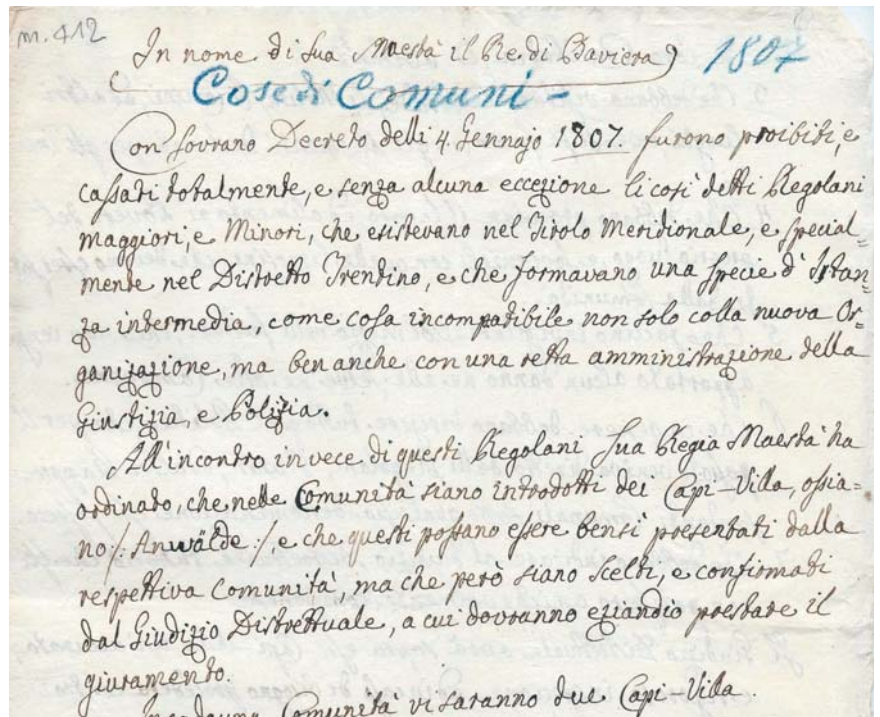 m. 412
In nome di Sua Maestà il Re di Baviera
1807
Cose di Comuni -
Con Sovrano Decreto delli 4. Gennajo 1807. furono proibiti, e
cassati totalmente, e senza alcuna eccezione li così detti Regolani
maggiori, e Minori, che esistevano nel Tirolo Meridionale, e special=
mente nel Distretto Trentino, e che formavano una specie d'Istan=
za intermedia, come cosa incompatibile non solo colla nuova Or=
ganizazione, ma ben anche con una retta amministrazione della
Giustizia, e Polizia.
All'incontro in vece di questi Regolani Sua Regia Maestà ha
ordinato, che nelle Comunità siano introdotti dei Capi-Villa, ossia=
no /: Anwälde :/, e che questi possano essere bensì presentati dalla
respettiva Comunità, ma che però siano scelti, e confirmati
dal Giudizio Distrettuale, a cui dovranno eziandio prestare il
giuramento.
Comunità vi saranno due Capi-Villa.